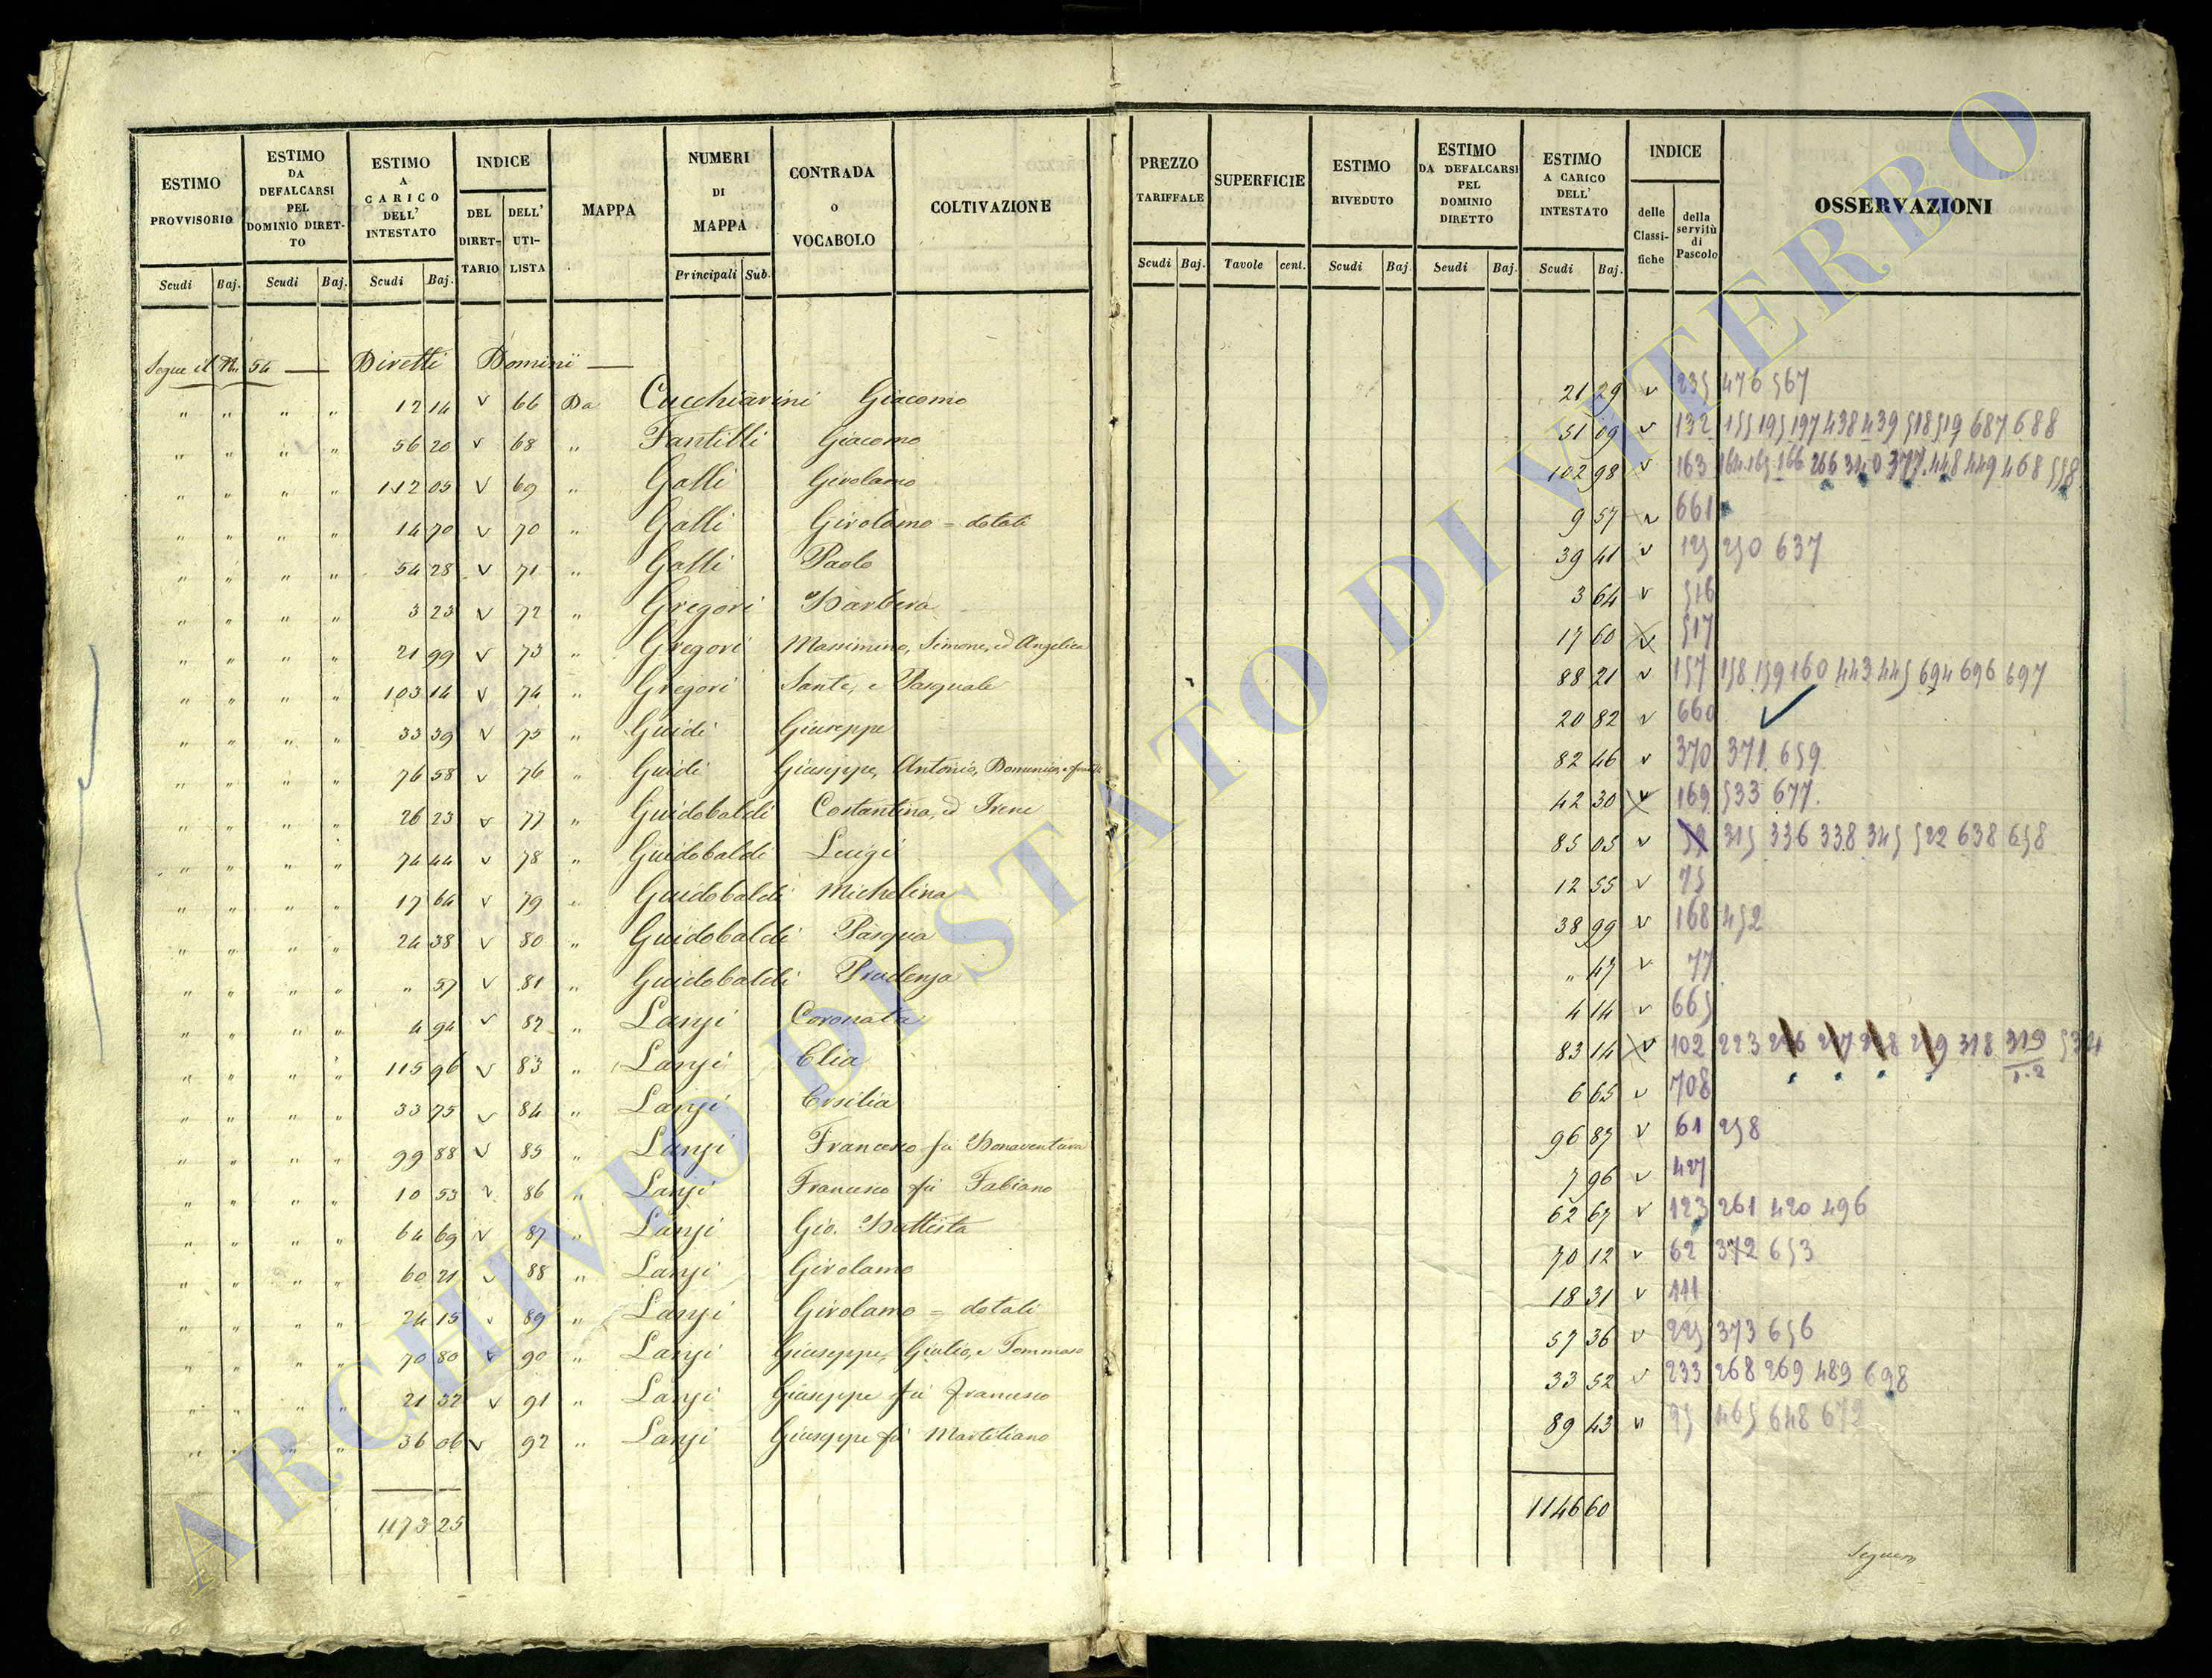 ESTIMO PROVVISORIO | ESTIMO DA DEFALCARSI PEL DOMINIO DIRETTO | ESTIMO A CARICO DELL' INTESTATO | INDICE DEL DIRETTARIO | DELL' UTILISTA | MAPPA | NUMERI DI MAPPA | CONTRADA o VOCABOLO | COLTIVAZIONE
Scudi | Baj. | Scudi | Baj. | Scudi | Baj. | Principali | Sub.
Segue il No. 54 — Diretti Dominii —
" " " " 12 14 v 66 Da Cucchiarini Giacomo
" " " " 56 20 v 68 " Fantilli Giacomo
" " " " 112 05 v 69 " Galli Girolamo
" " " " 14 70 v 70 " Galli Girolamo = dotali
" " " " 54 28 v 71 " Galli Paolo
" " " " 3 23 v 72 " Gregori Barbera
" " " " 21 99 v 73 " Gregori Massimino, Simone, ed Angelica
" " " " 103 14 v 74 " Gregori Sante, e Pasquale
" " " " 33 39 v 75 " Guidi Giuseppe
" " " " 76 58 v 76 " Guidi Giuseppe, Antonio, Domenico, e
" " " " 26 23 v 77 " Guidobaldi Costantina, ed Irene
" " " " 74 44 v 78 " Guidobaldi Luigi
" " " " 17 64 v 79 " Guidobaldi Michelina
" " " " 24 38 v 80 " Guidobaldi Pasqua
" " " " " 57 v 81 " Guidobaldi Prudenza
" " " " 4 94 v 82 " Lanzi Coronata
" " " " 115 96 v 83 " Lanzi Elia
" " " " 33 75 v 84 " Lanzi Ersilia
" " " " 99 88 v 85 " Lanzi Francesco fù Bonaventura
" " " " 10 53 v 86 " Lanzi Francesco fù Fabiano
" " " " 64 69 v 87 " Lanzi Gio. Battista
" " " " 60 21 v 88 " Lanzi Girolamo
" " " " 24 15 v 89 " Lanzi Girolamo = dotali
" " " " 70 80 v 90 " Lanzi Giuseppe, Giulio, e Tommaso
" " " " 21 32 v 91 " Lanzi Giuseppe fù Francesco
" " " " 36 06 v 92 " Lanzi Giuseppe fù Martiliano
1173 25
PREZZO TARIFFALE | SUPERFICIE | ESTIMO RIVEDUTO | ESTIMO DA DEFALCARSI PEL DOMINIO DIRETTO | ESTIMO A CARICO DELL' INTESTATO | INDICE delle Classifiche | della servitù di Pascolo | OSSERVAZIONI
Scudi | Baj. | Tavole | cent. | Scudi | Baj. | Scudi | Baj. | Scudi | Baj.
21 29 v 235 476 567
51 09 v 132 155 195 197 438 439 518 519 687 688
102 98 v 163 164 165 166 266 340 377 448 449 468 558
9 57 v 661
39 41 v 125 250 637
3 64 v 516
17 60 v 517
88 21 v 157 158 159 160 443 445 694 696 697
20 82 v 660
82 46 v 370 371 659
42 30 v 169 533 677
85 05 v 59 315 336 338 345 522 638 658
12 55 v 75
38 99 v 168 452
" 47 v 77
4 14 v 665
83 14 v 102 223 226 227 228 229 318 319 1.2 534
6 65 v 708
96 87 v 61 258
7 96 v 427
62 67 v 123 261 420 496
70 12 v 62 372 653
18 31 v 111
57 36 v 225 373 656
33 52 v 233 268 269 489 698
89 43 v 95 465 648 672
1146 60
Seguen
ARCHIVIO DI STATO DI VITERBO